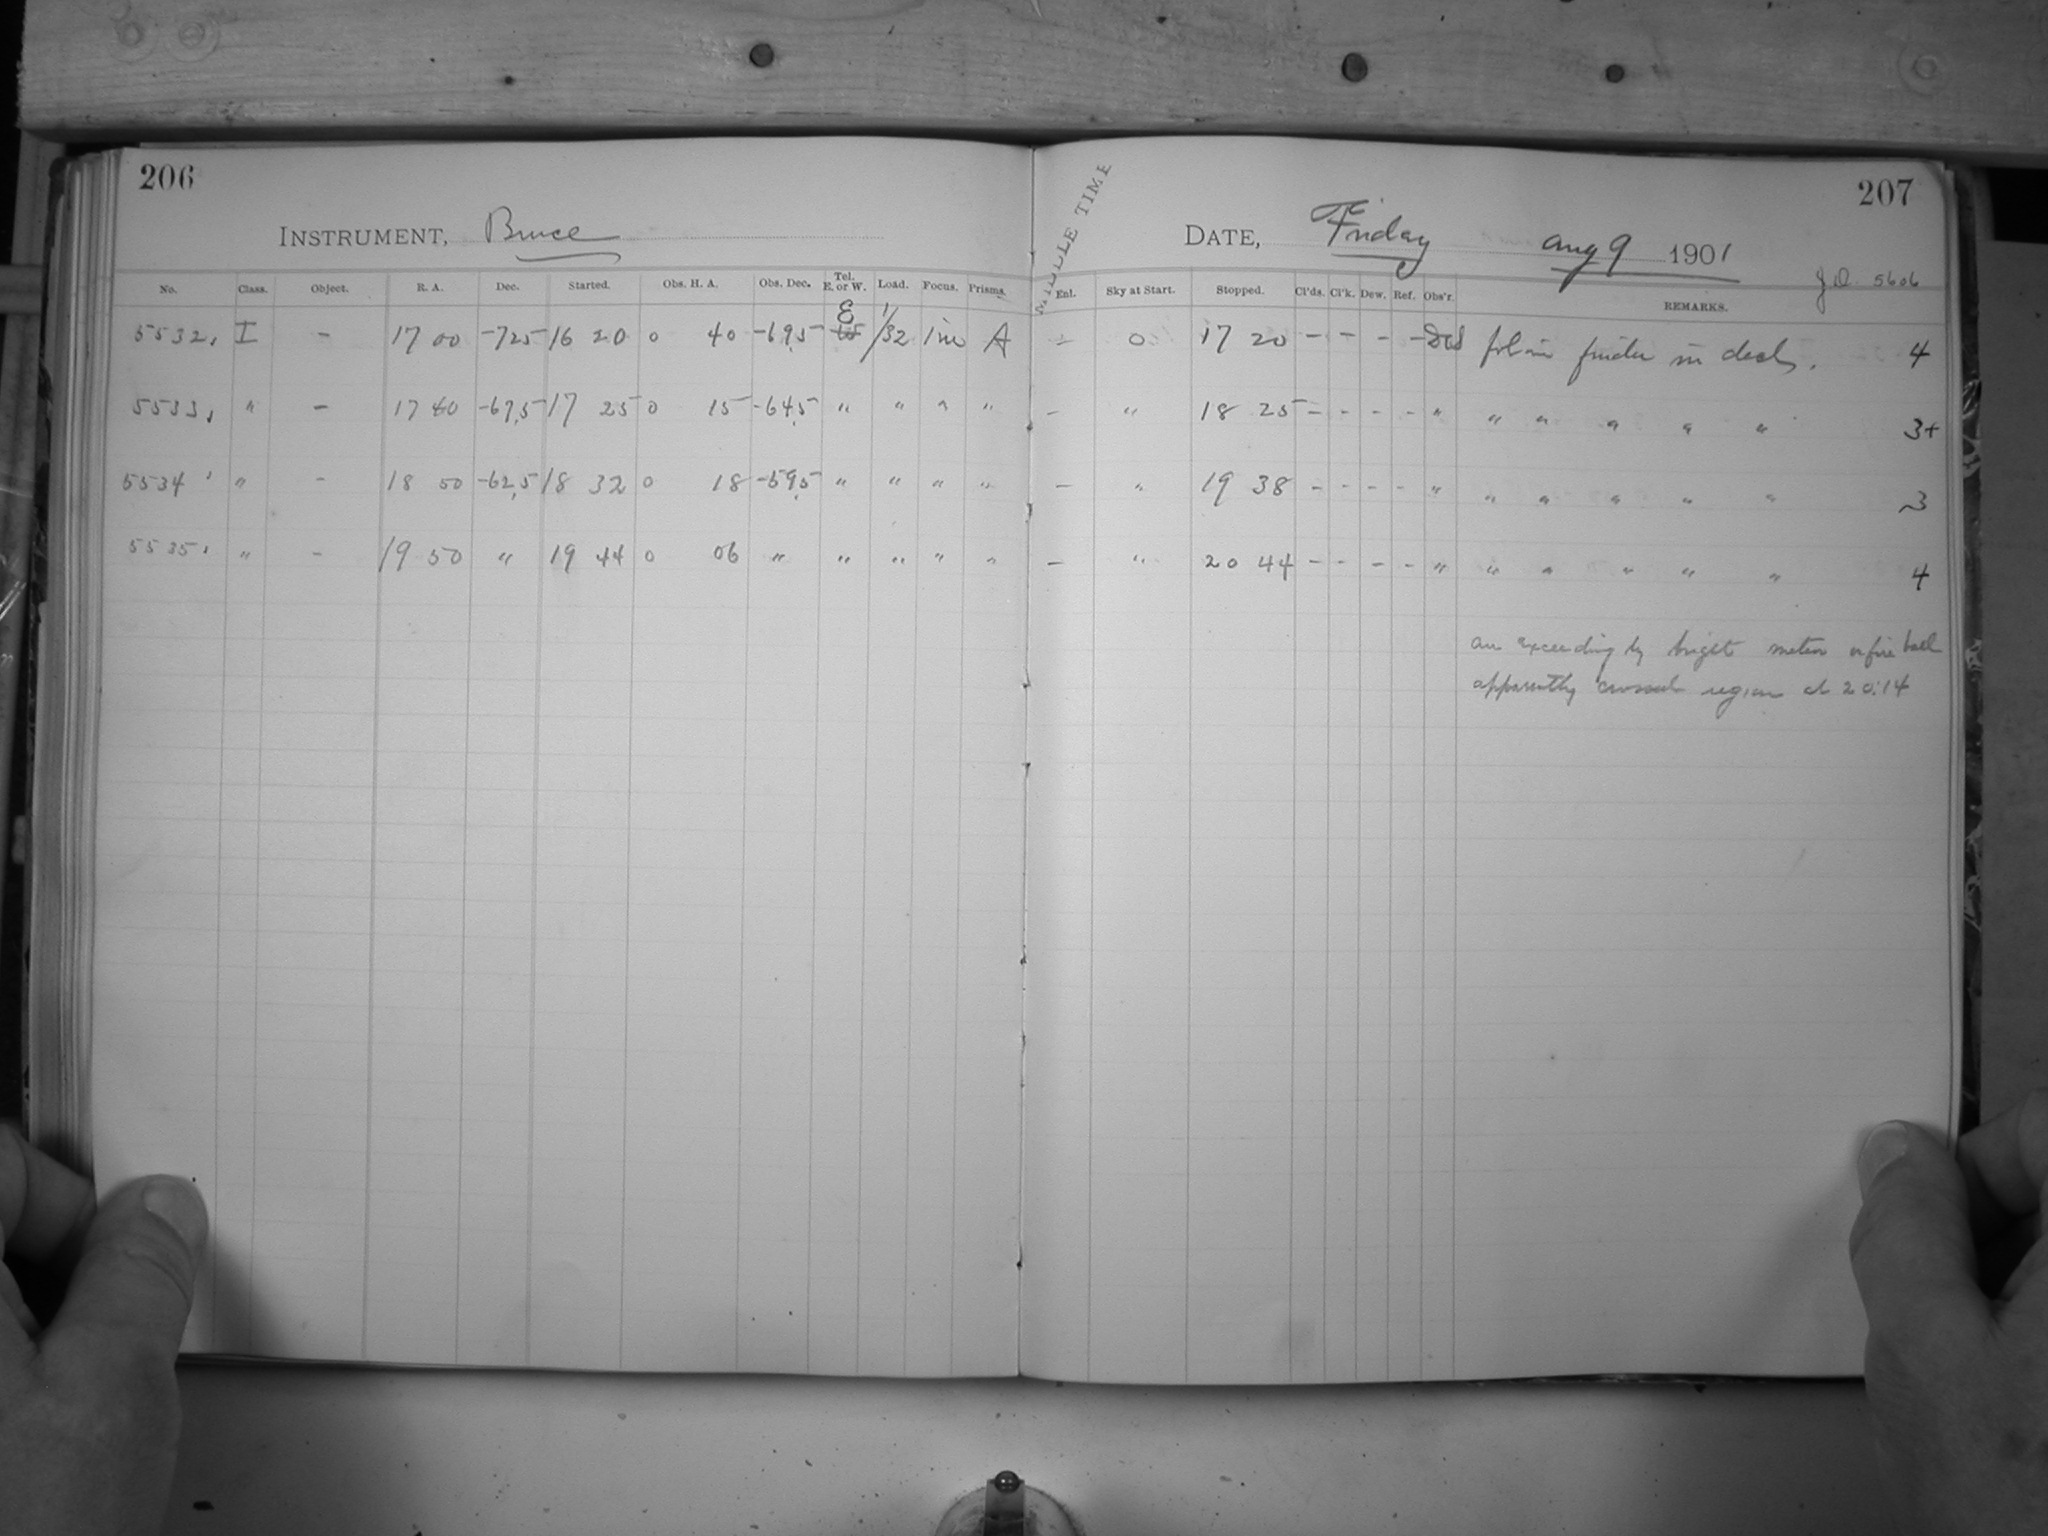 206
207
MIDDLE TIME
INSTRUMENT, Bruce
DATE, Friday Aug 9 1901
J.D. 5606
No. Class. Object. R. A. Dec. Started. Obs. H. A. Obs. Dec. Tel. E. or W. Load. Focus. Prisms. Enl. Sky at Start. Stopped. Cl'ds. Cl'k. Dew. Ref. Obs'r. REMARKS.
5532, I - 17 00 -72.5 16 20 0 40 -69.5 E 1/32 A - 0 17 20 - - - - fol in finder in dec. 4
5533, " - 17 40 -67.5 17 25 0 15 -64.5 " " " " - " 18 25 - - - - " " " " " " 3+
5534 ' " - 18 50 -62.5 18 32 0 18 -59.5 " " " " - " 19 38 - - - - " " " " " " 3
5535, " - 19 50 " 19 44 0 06 " " " " " - " 20 44 - - - - " " " " " " 4
an exceedingly bright meteor or fire ball
apparently crossed region at 20:14